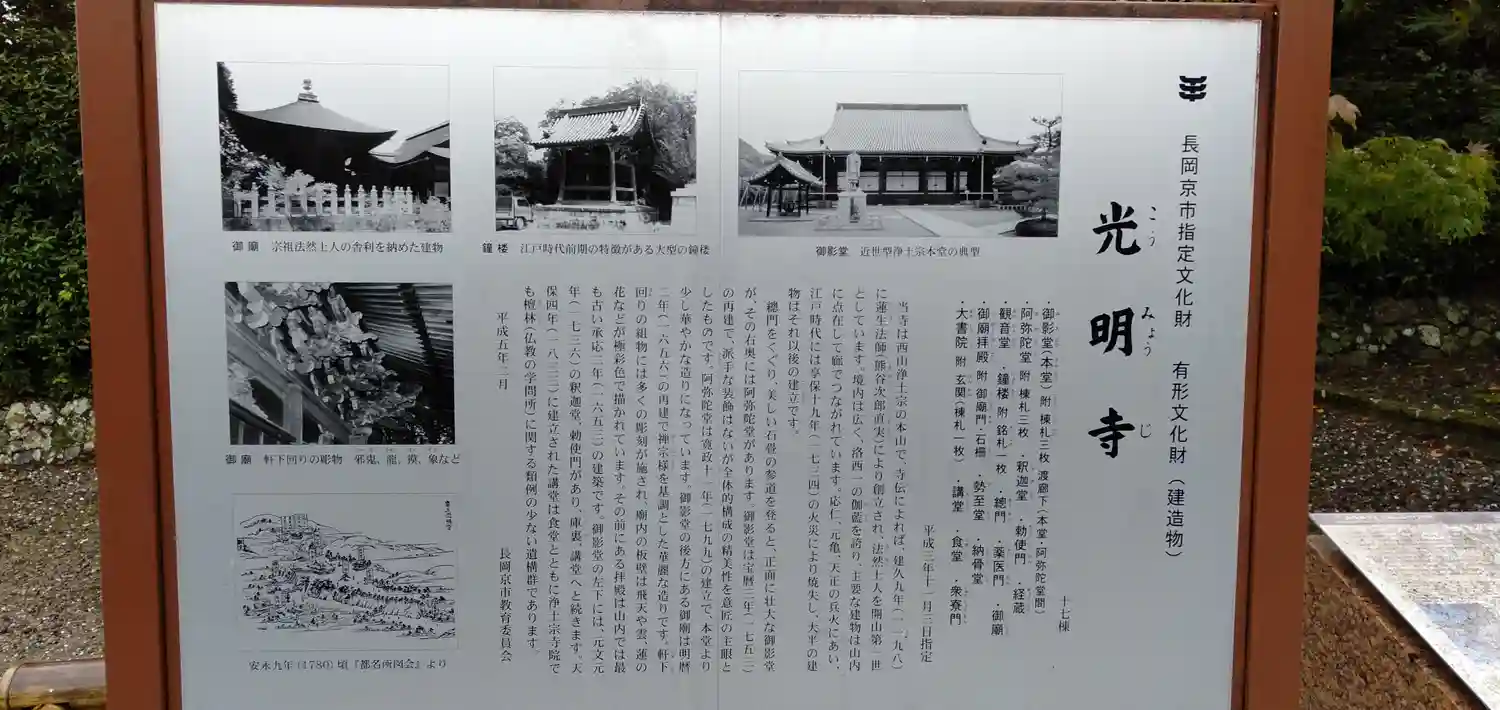 長岡京市指定文化財　有形文化財（建造物）
光明寺
こう　みょう　じ
十七棟
・御影堂（本堂）附 棟札三枚 渡廊下（本堂・阿弥陀堂間）
・阿弥陀堂 附 棟札三枚 ・釈迦堂 ・勅使門 ・経蔵
・観音堂 ・鐘楼 附 銘札一枚 ・總門 ・薬医門 ・御廟
・御廟拝殿 附 御廟門・石柵 ・勢至堂 ・納骨堂
・大書院 附 玄関（棟札一枚） ・講堂 ・食堂 ・衆寮門
平成三年十一月三日指定
当寺は西山浄土宗の本山で、寺伝によれば、建久九年（一一九八）
に蓮生法師（熊谷次郎直実）により創立され、法然上人を開山第一世
としています。境内は広く、洛西一の伽藍を誇り、主要な建物は山内
に点在して廊でつながれています。応仁、元亀、天正の兵火にあい、
江戸時代には享保十九年（一七三四）の火災により焼失し、大半の建
物はそれ以後の建立です。
總門をくぐり、美しい石畳の参道を登ると、正面に壮大な御影堂
が、その右奥には阿弥陀堂があります 御影堂は宝暦三年（一七五三）
の再建で、派手な装飾はないが全体的構成の精美性を意匠の主眼と
したものです。阿弥陀堂は寛政十一年（一七九九）の建立で、本堂より
少し華やかな造りになっています。御影堂の後方にある御廟は明暦
二年（一六五六）の再建で禅宗様を基調とした華麗な造りです。軒下
回りの組物には多くの彫刻が施され、廟内の板壁は飛天や雲、蓮の
花などが極彩色で描かれています。その前にある拝殿は山内では最
も古い承応二年（一六五三）の建築です。御影堂の左下には、元文元
年（一七三六）の釈迦堂、勅使門があり、庫裏、講堂へと続きます。天
保四年（一八三三）に建立された講堂は食堂とともに浄土宗寺院で
も檀林（仏教の学問所）に関する類例の少ない遺構群であります。
平成五年二月
長岡京市教育委員会
御影堂　近世型浄土宗本堂の典型
鐘楼　江戸時代前期の特徴がある大型の鐘楼
御廟　宗祖法然上人の舎利を納めた建物
御廟　軒下回りの彫物　邪鬼、龍、獏、象など
安永九年（1780）頃『都名所図会』より